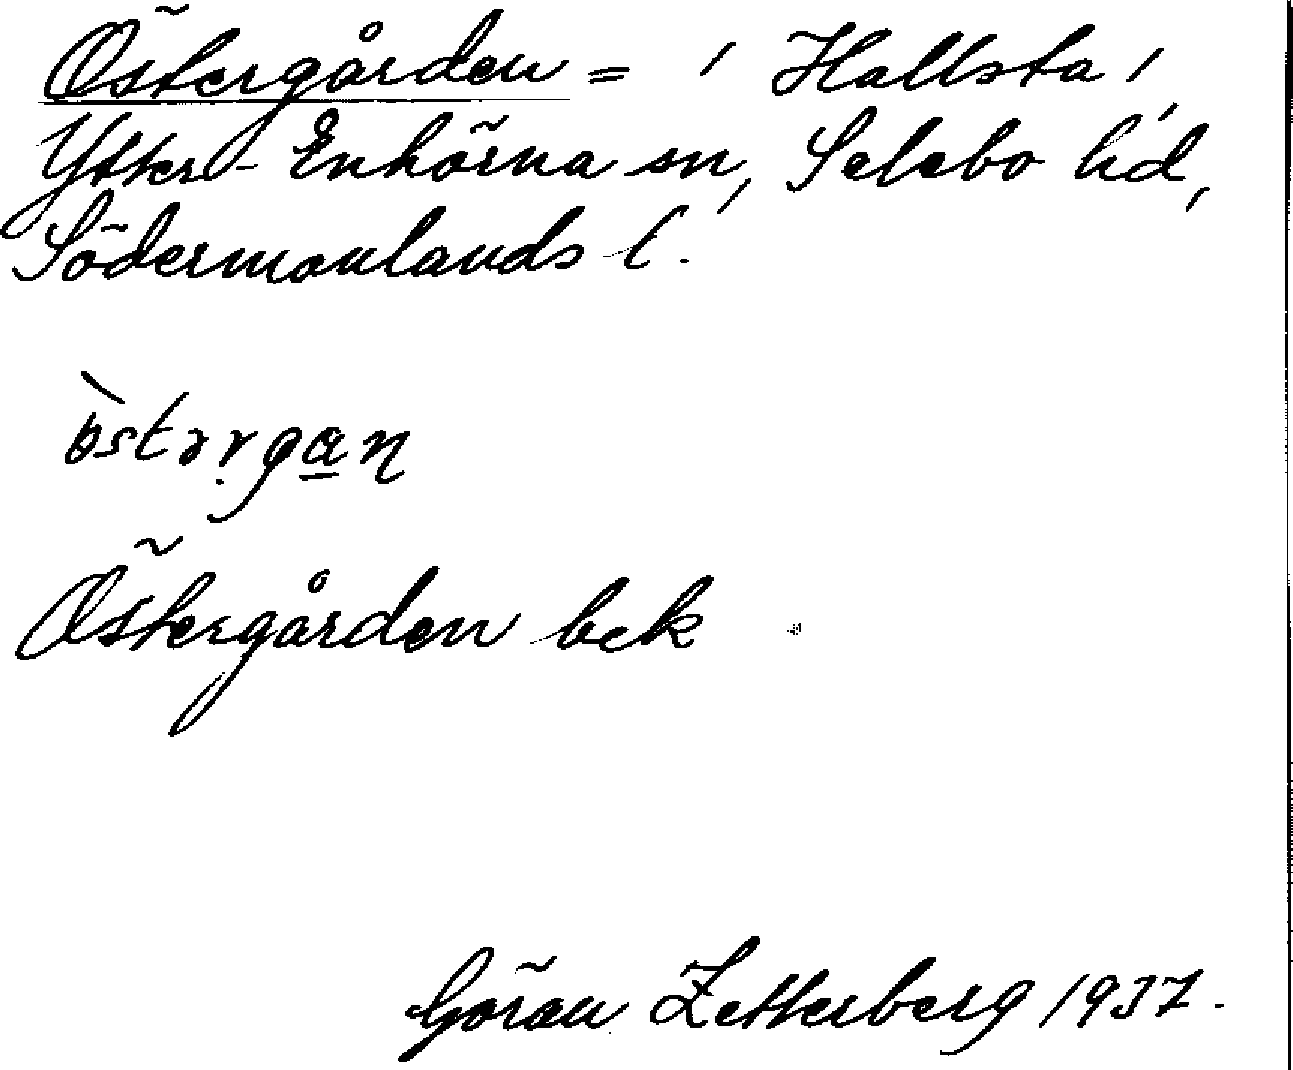 Östergården = , Hallsta ,
Ytter-Enhörna sn, Selebo hd,
Södermanlands l.
östərgan
Östergården bek
Göran Zetterberg 1937.